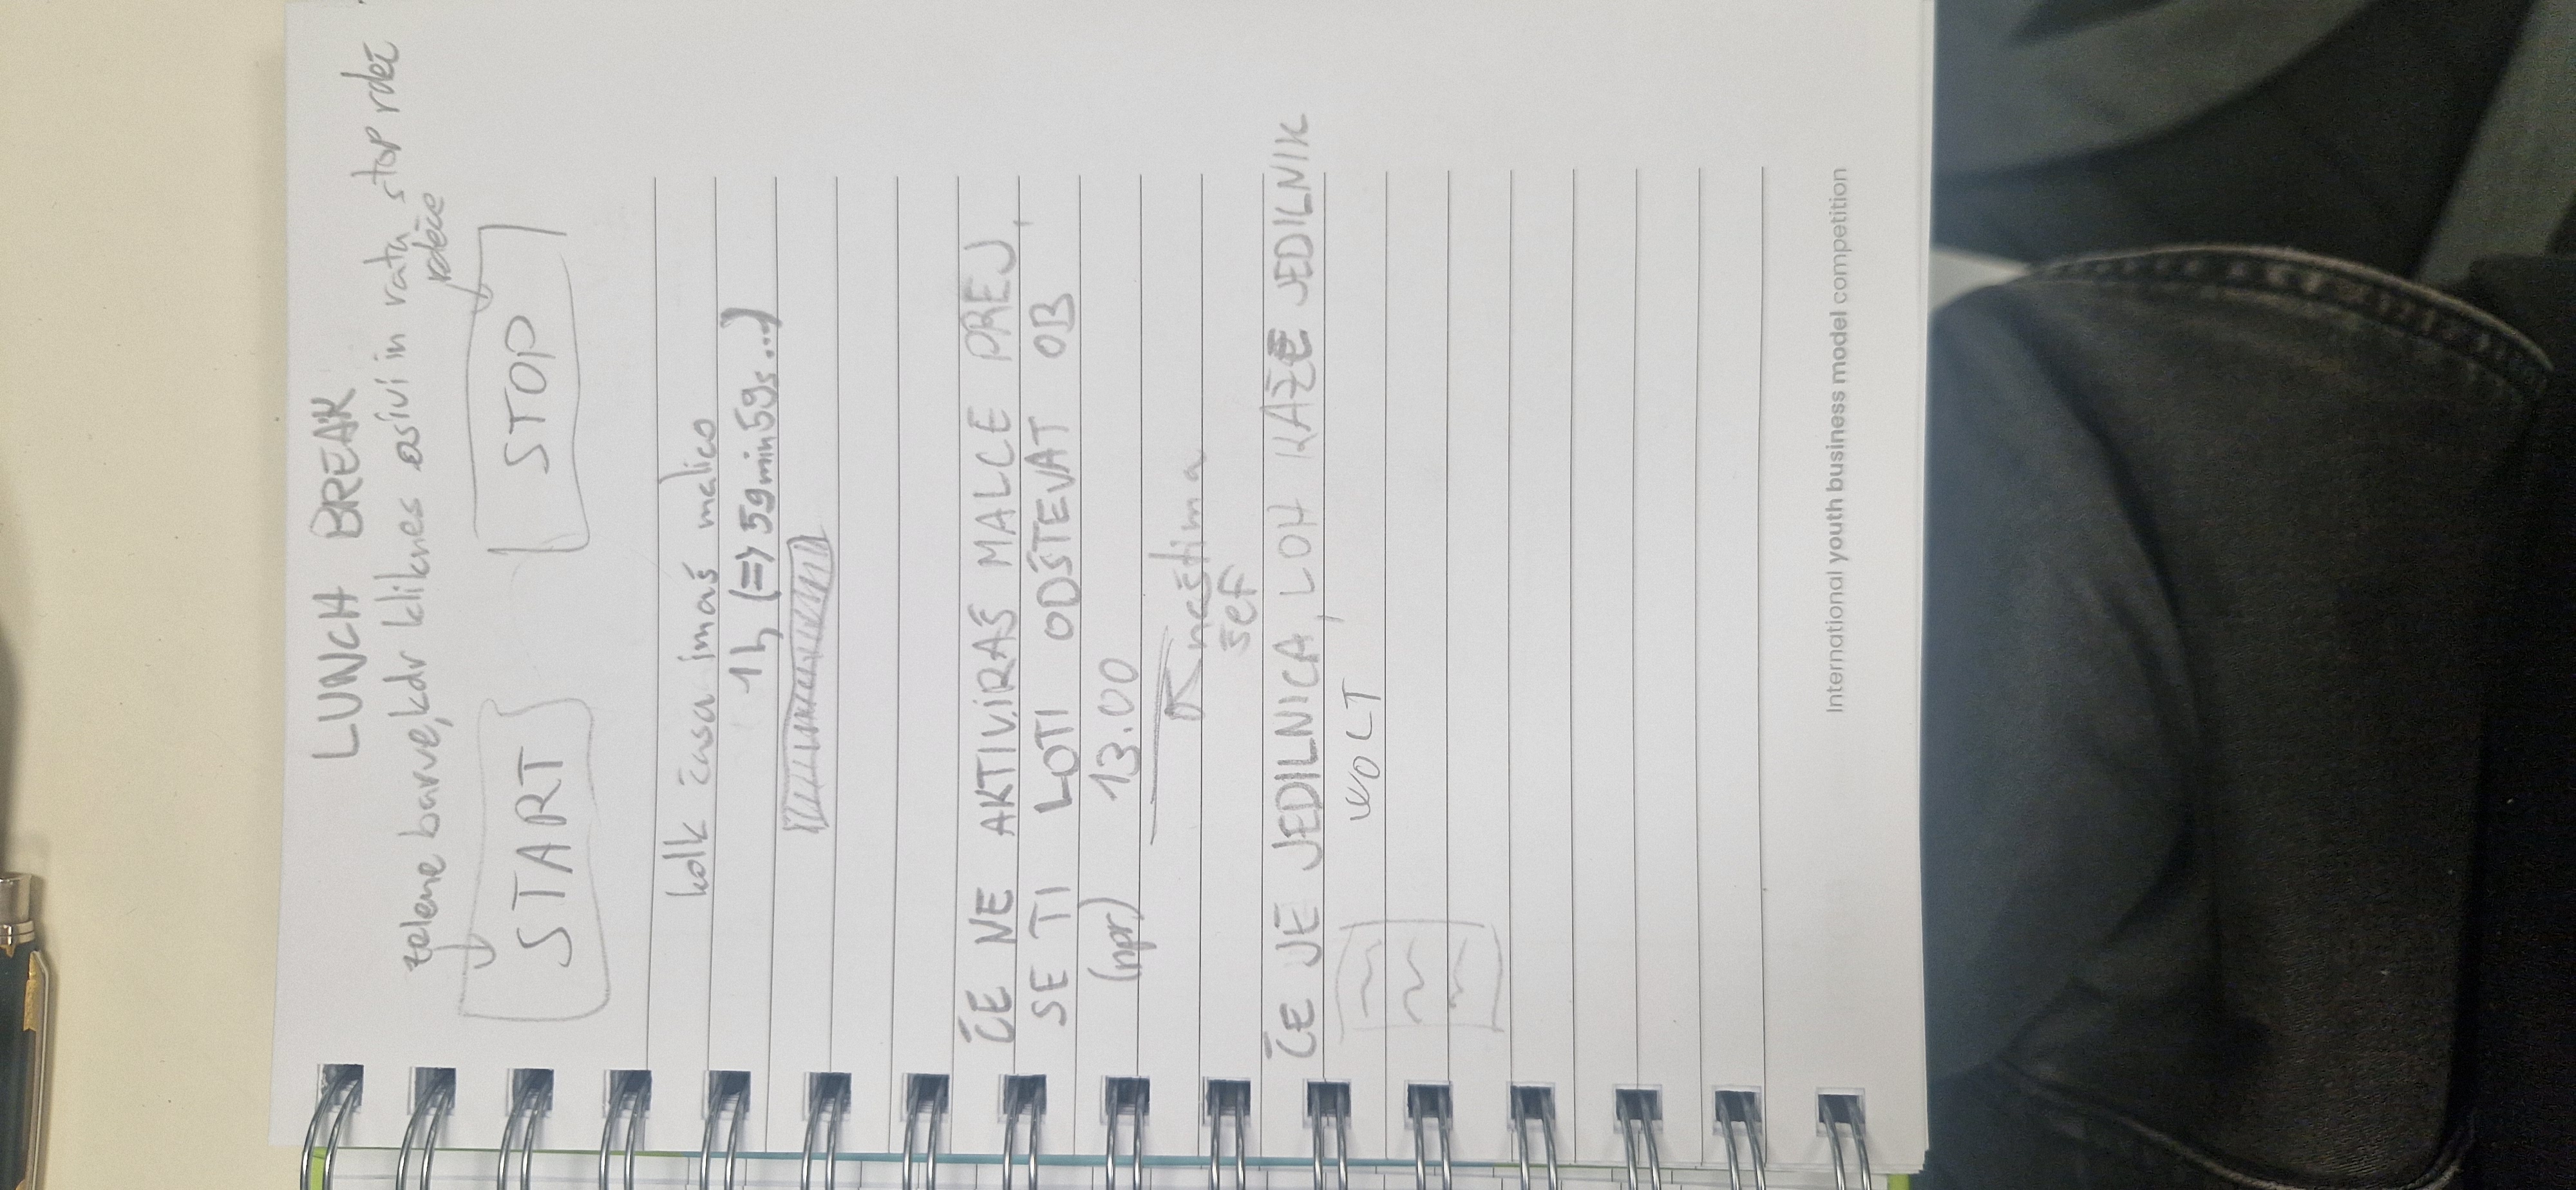 LUNCH BREAK
zelene barve, kdr kliknes osivi in rata stop rdeč
rdeče
START STOP
kolk časa imaš malico
1h (=> 59min59s...)
ČE NE AKTIVIRAŠ MALCE PREJ,
SE TI LOTI ODŠTEVAT OB
(npr) 13.00
naštima
šef
ČE JE JEDILNICA, LOH KAŽE JEDILNIK
WOLT
International youth business model competition